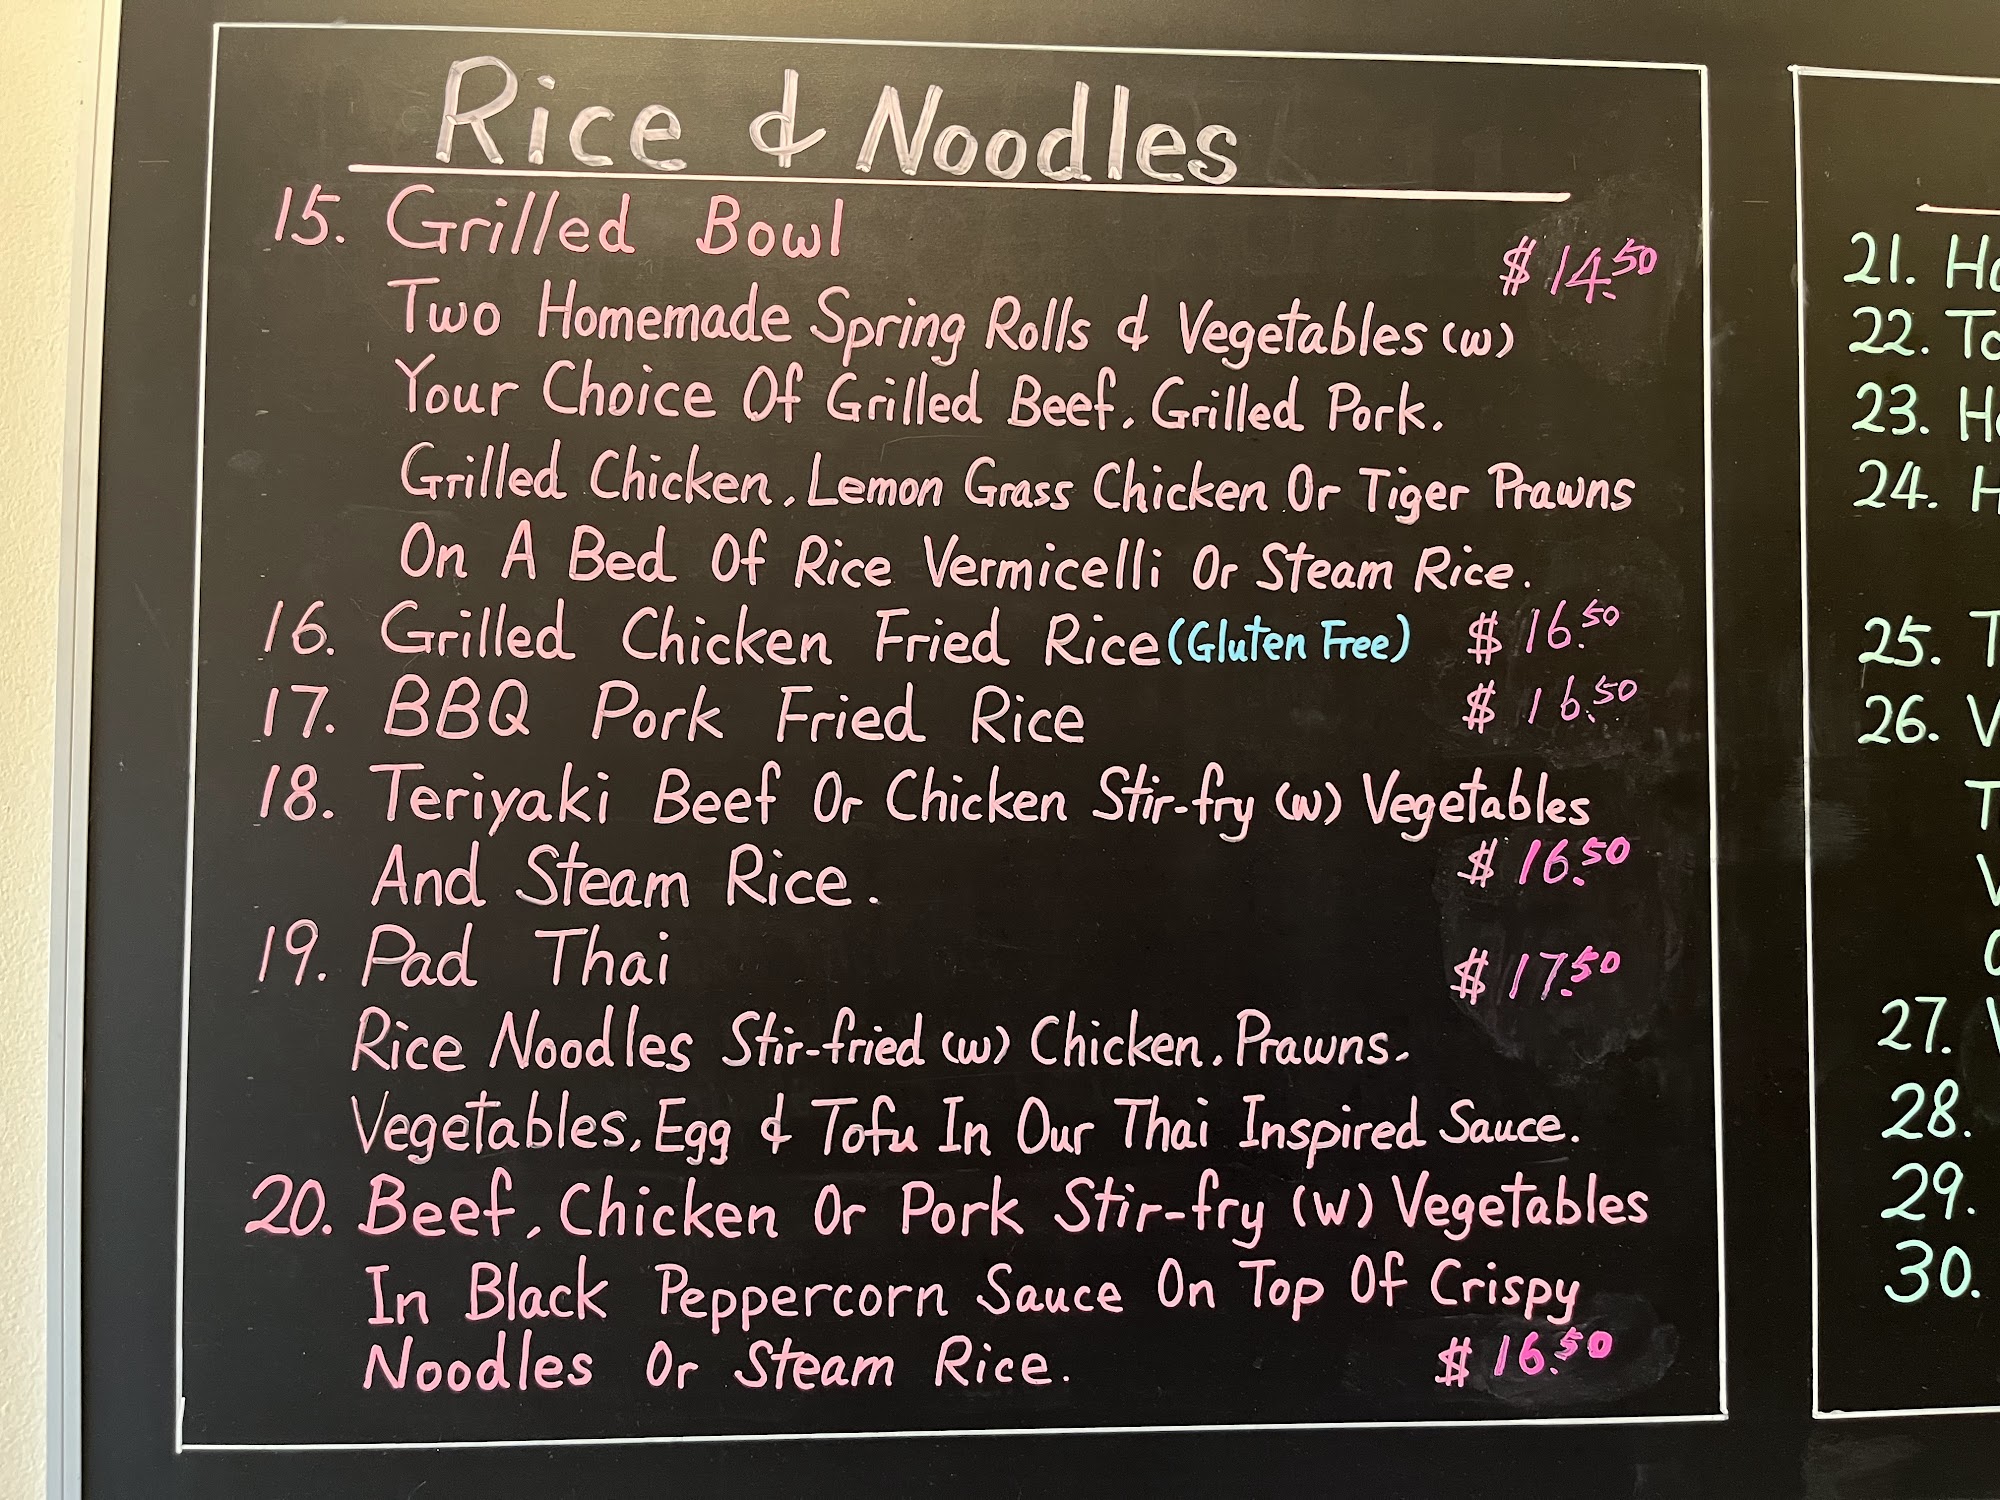 Rice & Noodles
15. Grilled Bowl
$14.50
Two Homemade Spring Rolls & Vegetables (w)
Your Choice Of Grilled Beef, Grilled Pork,
Grilled Chicken, Lemon Grass Chicken Or Tiger Prawns
On A Bed Of Rice Vermicelli Or Steam Rice.
16. Grilled Chicken Fried Rice (Gluten Free) $16.50
17. BBQ Pork Fried Rice $16.50
18. Teriyaki Beef Or Chicken Stir-fry (w) Vegetables
And Steam Rice. $16.50
19. Pad Thai $17.50
Rice Noodles Stir-fried (w) Chicken, Prawns,
Vegetables, Egg & Tofu In Our Thai Inspired Sauce.
20. Beef, Chicken Or Pork Stir-fry (W) Vegetables
In Black Peppercorn Sauce On Top Of Crispy
Noodles Or Steam Rice. $16.50
21.
22.
23.
24.
25.
26.
27.
28.
29.
30.